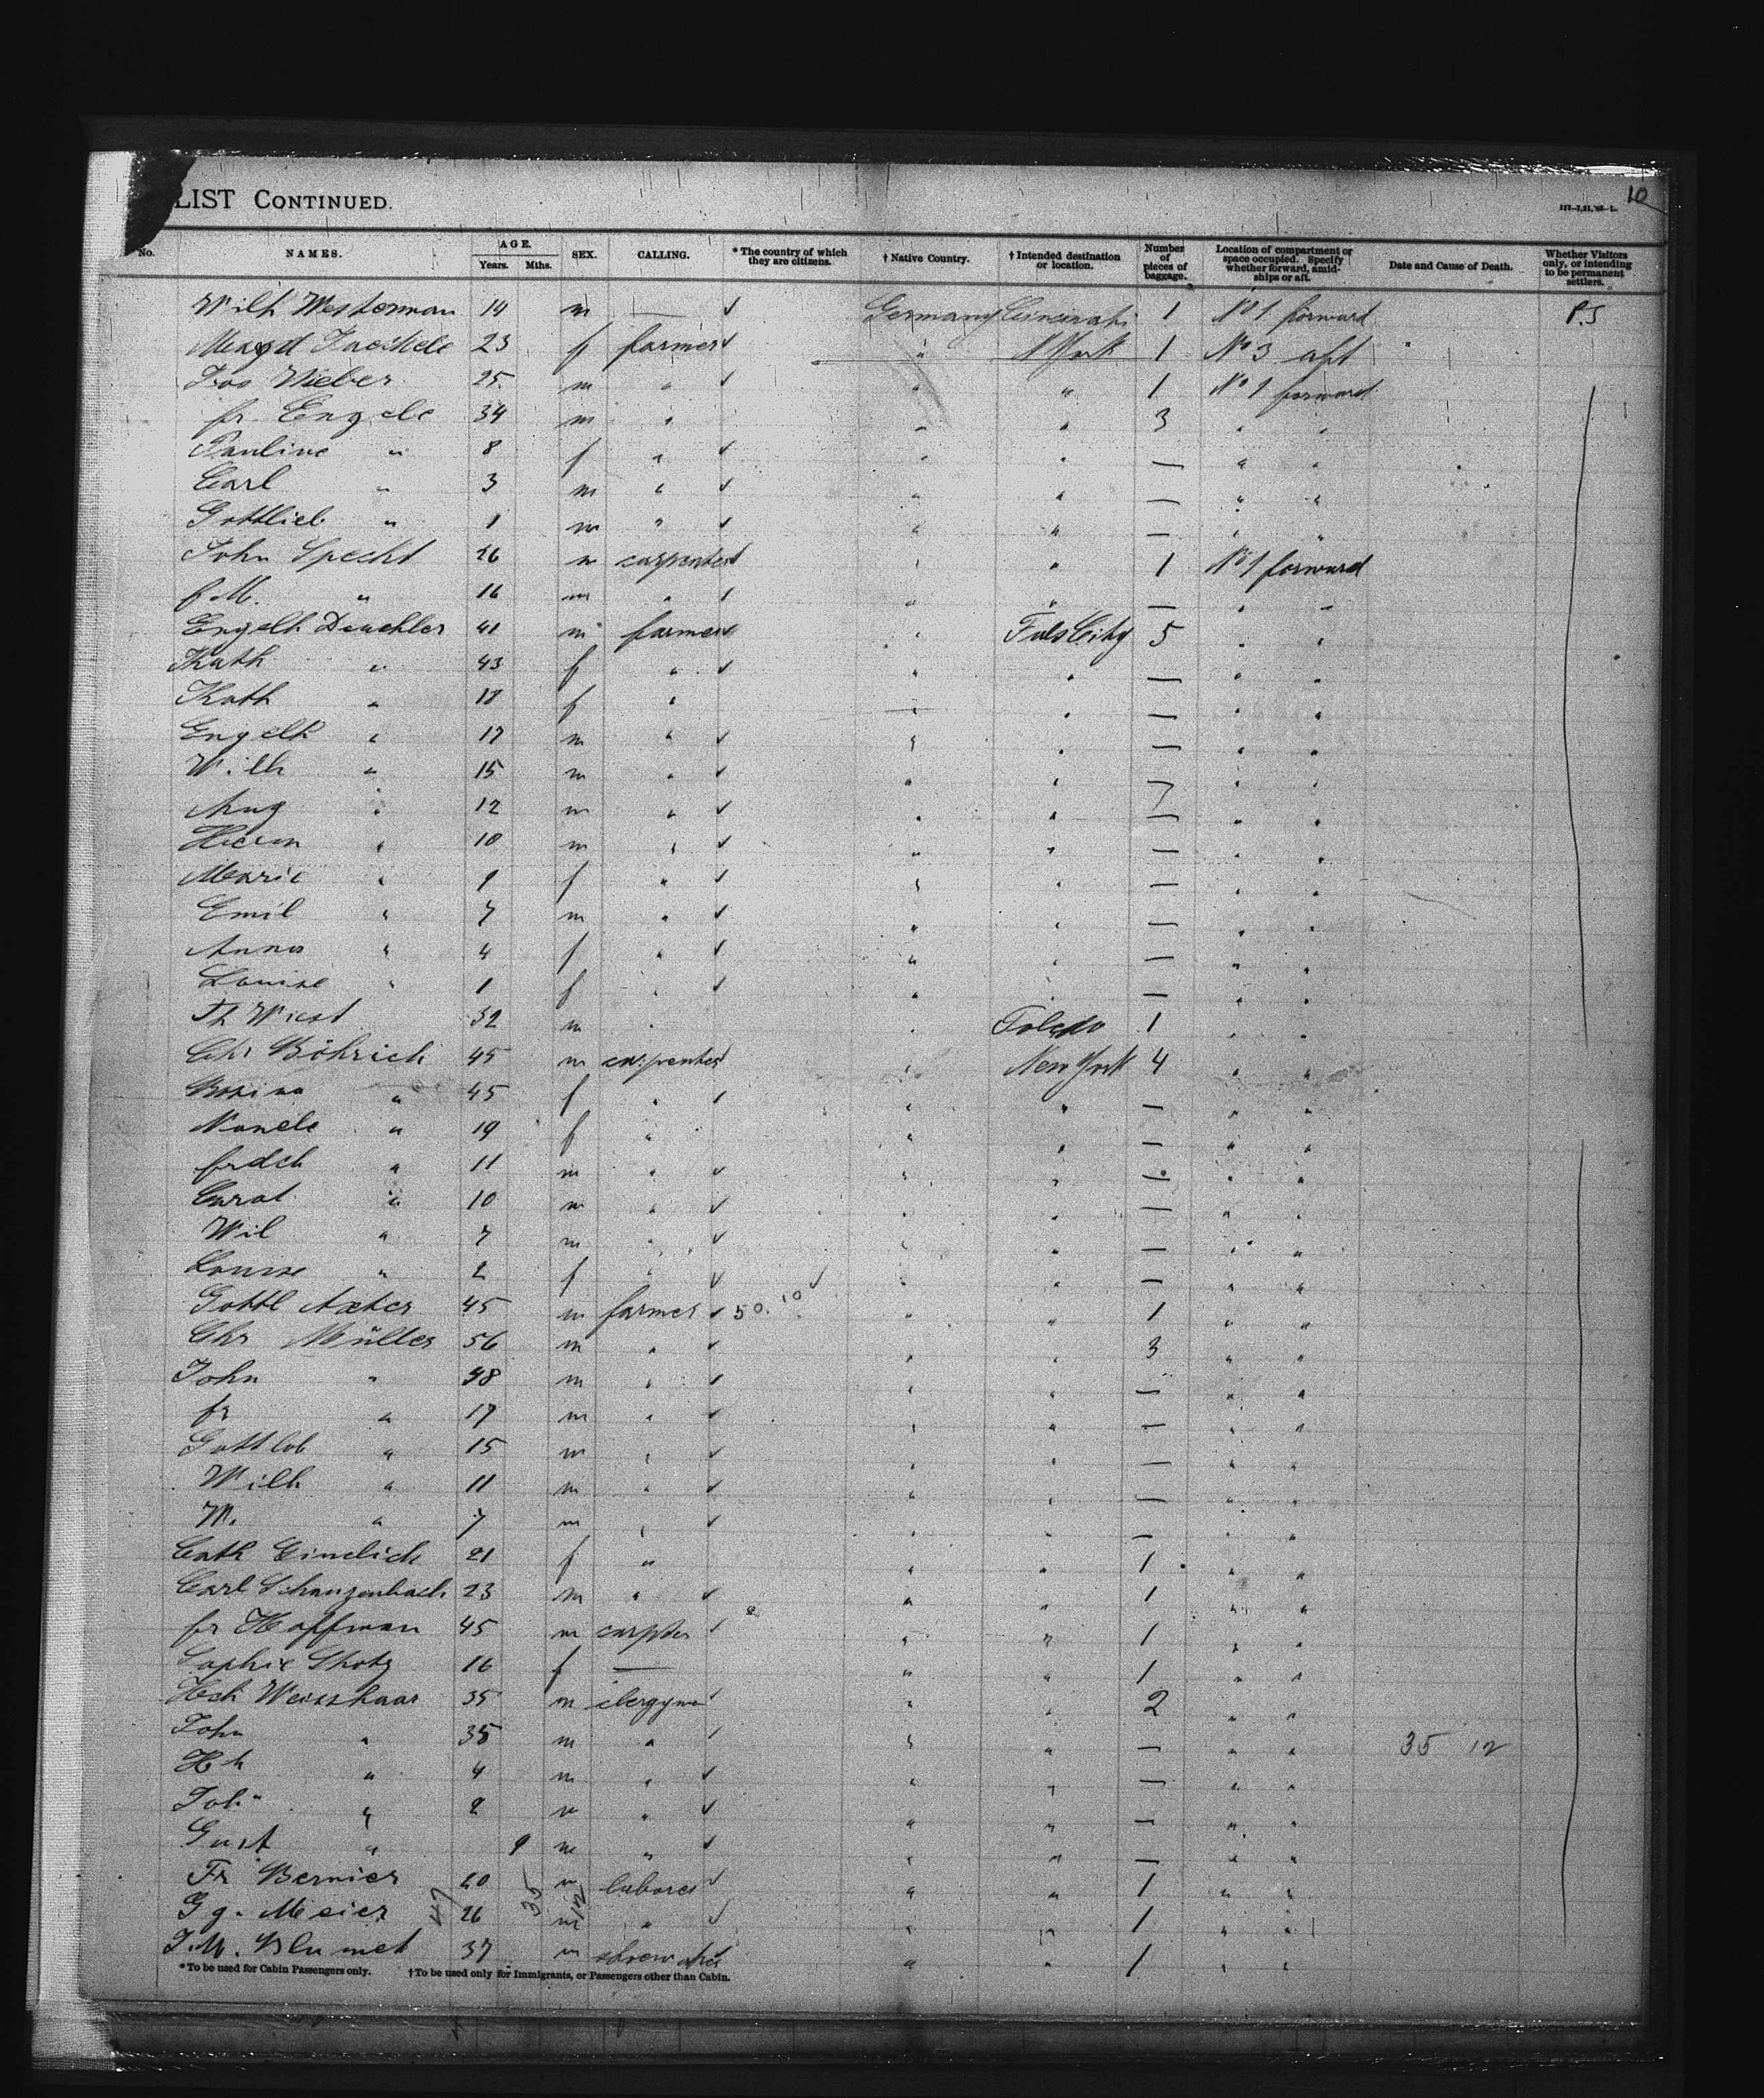 10
LIST CONTINUED.
No. NAMES. AGE. Years. Mths. SEX. CALLING. * The country of which they are citizens. † Native Country. † Intended destination or location. Number of pieces of baggage. Location of compartment or space occupied. Specify whether forward, amidships or aft. Date and Cause of Death. Whether Visitors only, or intending to be permanent settlers.
Wilh Westerman 14 m — ✓ Germany Cincinati 1 No 1 forward P.S
23 f farmer ✓ " N York 1 No 3 aft
Wieber 25 m " ✓ " " 1 No 1 forward
fr. Engele 34 m " " " 3 " "
Pauline " 8 f " ✓ " " — " "
Carl " 3 m " ✓ " " — " "
Gottlieb " 1 m " ✓ " " — " "
John Specht 26 m carpenter ✓ " " 1 No 1 forward
f. M. " 16 m " ✓ " " — " "
Engelh Deuchler 41 m farmer ✓ " Fals City 5 " "
Kath " 43 f " ✓ " " — " "
Kath " f " " " — " "
Engelh " 17 m " ✓ " " — " "
Wilh " 15 m " ✓ " " — " "
Aug " 12 m " ✓ " " — " "
Herm " 10 m " ✓ " " — " "
Marie " 9 f " ✓ " " — " "
Emil " 7 m " ✓ " " — " "
Anna " 4 f " ✓ " " — " "
Louise " 1 f " ✓ " " — " "
Th Wiest 32 m " " Toledo 1 " "
Chr Böhrich 45 m carpenter ✓ " New York 4 " "
Rosina " 45 f " ✓ " " — " "
Nanele " 19 f " " " — " "
frdch " 11 m " ✓ " " — " "
" 10 m " ✓ " " — " "
Wil " 7 m " ✓ " " — " "
Louise " 2 f " ✓ ✓ " " — " "
Gottl Axter 45 m farmer ✓ 50. 10 " " 1 " "
Chr Müller 56 m " ✓ " " 3 " "
John " m " ✓ " " — " "
fr " 17 m " ✓ " " — " "
Gottlob " 15 m " ✓ " " — " "
Wilh " 11 m " ✓ " " — " "
M. " 7 m " ✓ " " — " "
Cath 21 f " " " 1 " "
Carl Schanzenbach 23 m " ✓ " " 1 " "
fr Hoffman 45 m carpter ✓ " " 1 " "
Sophie Shotz 16 f — " " 1 " "
Hch Weisshaar 35 m clergyma ✓ " " 2 " "
John " 35 m " ✓ " " — " " 35 12
Hh " 4 m " ✓ " " — " "
Joh " 2 m " ✓ " " — " "
Gust " 9 m " ✓ " " — " "
Fr Bernier 20 m laborer ✓ " " 1 " "
Gg. Meier 26 m " ✓ " " 1 " "
J. M. Blumet 37 m " " 1 " "
47 35 12
*To be used for Cabin Passengers only. †To be used only for Immigrants, or Passengers other than Cabin.